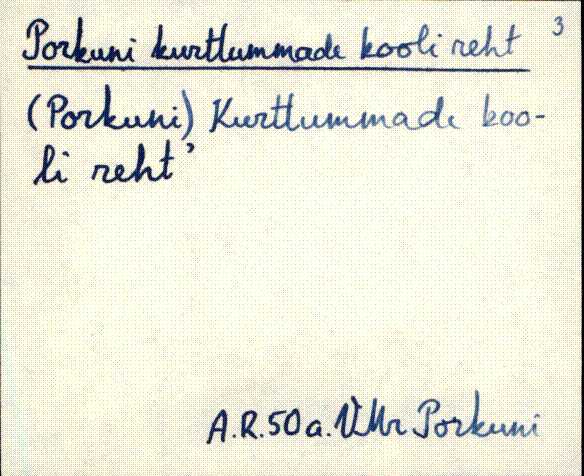 Porkuni kurttummade kooli reht 3
(Porkuni) Kurttummade koo-
li reht'
A.R. 50 a. VMr Porkuni